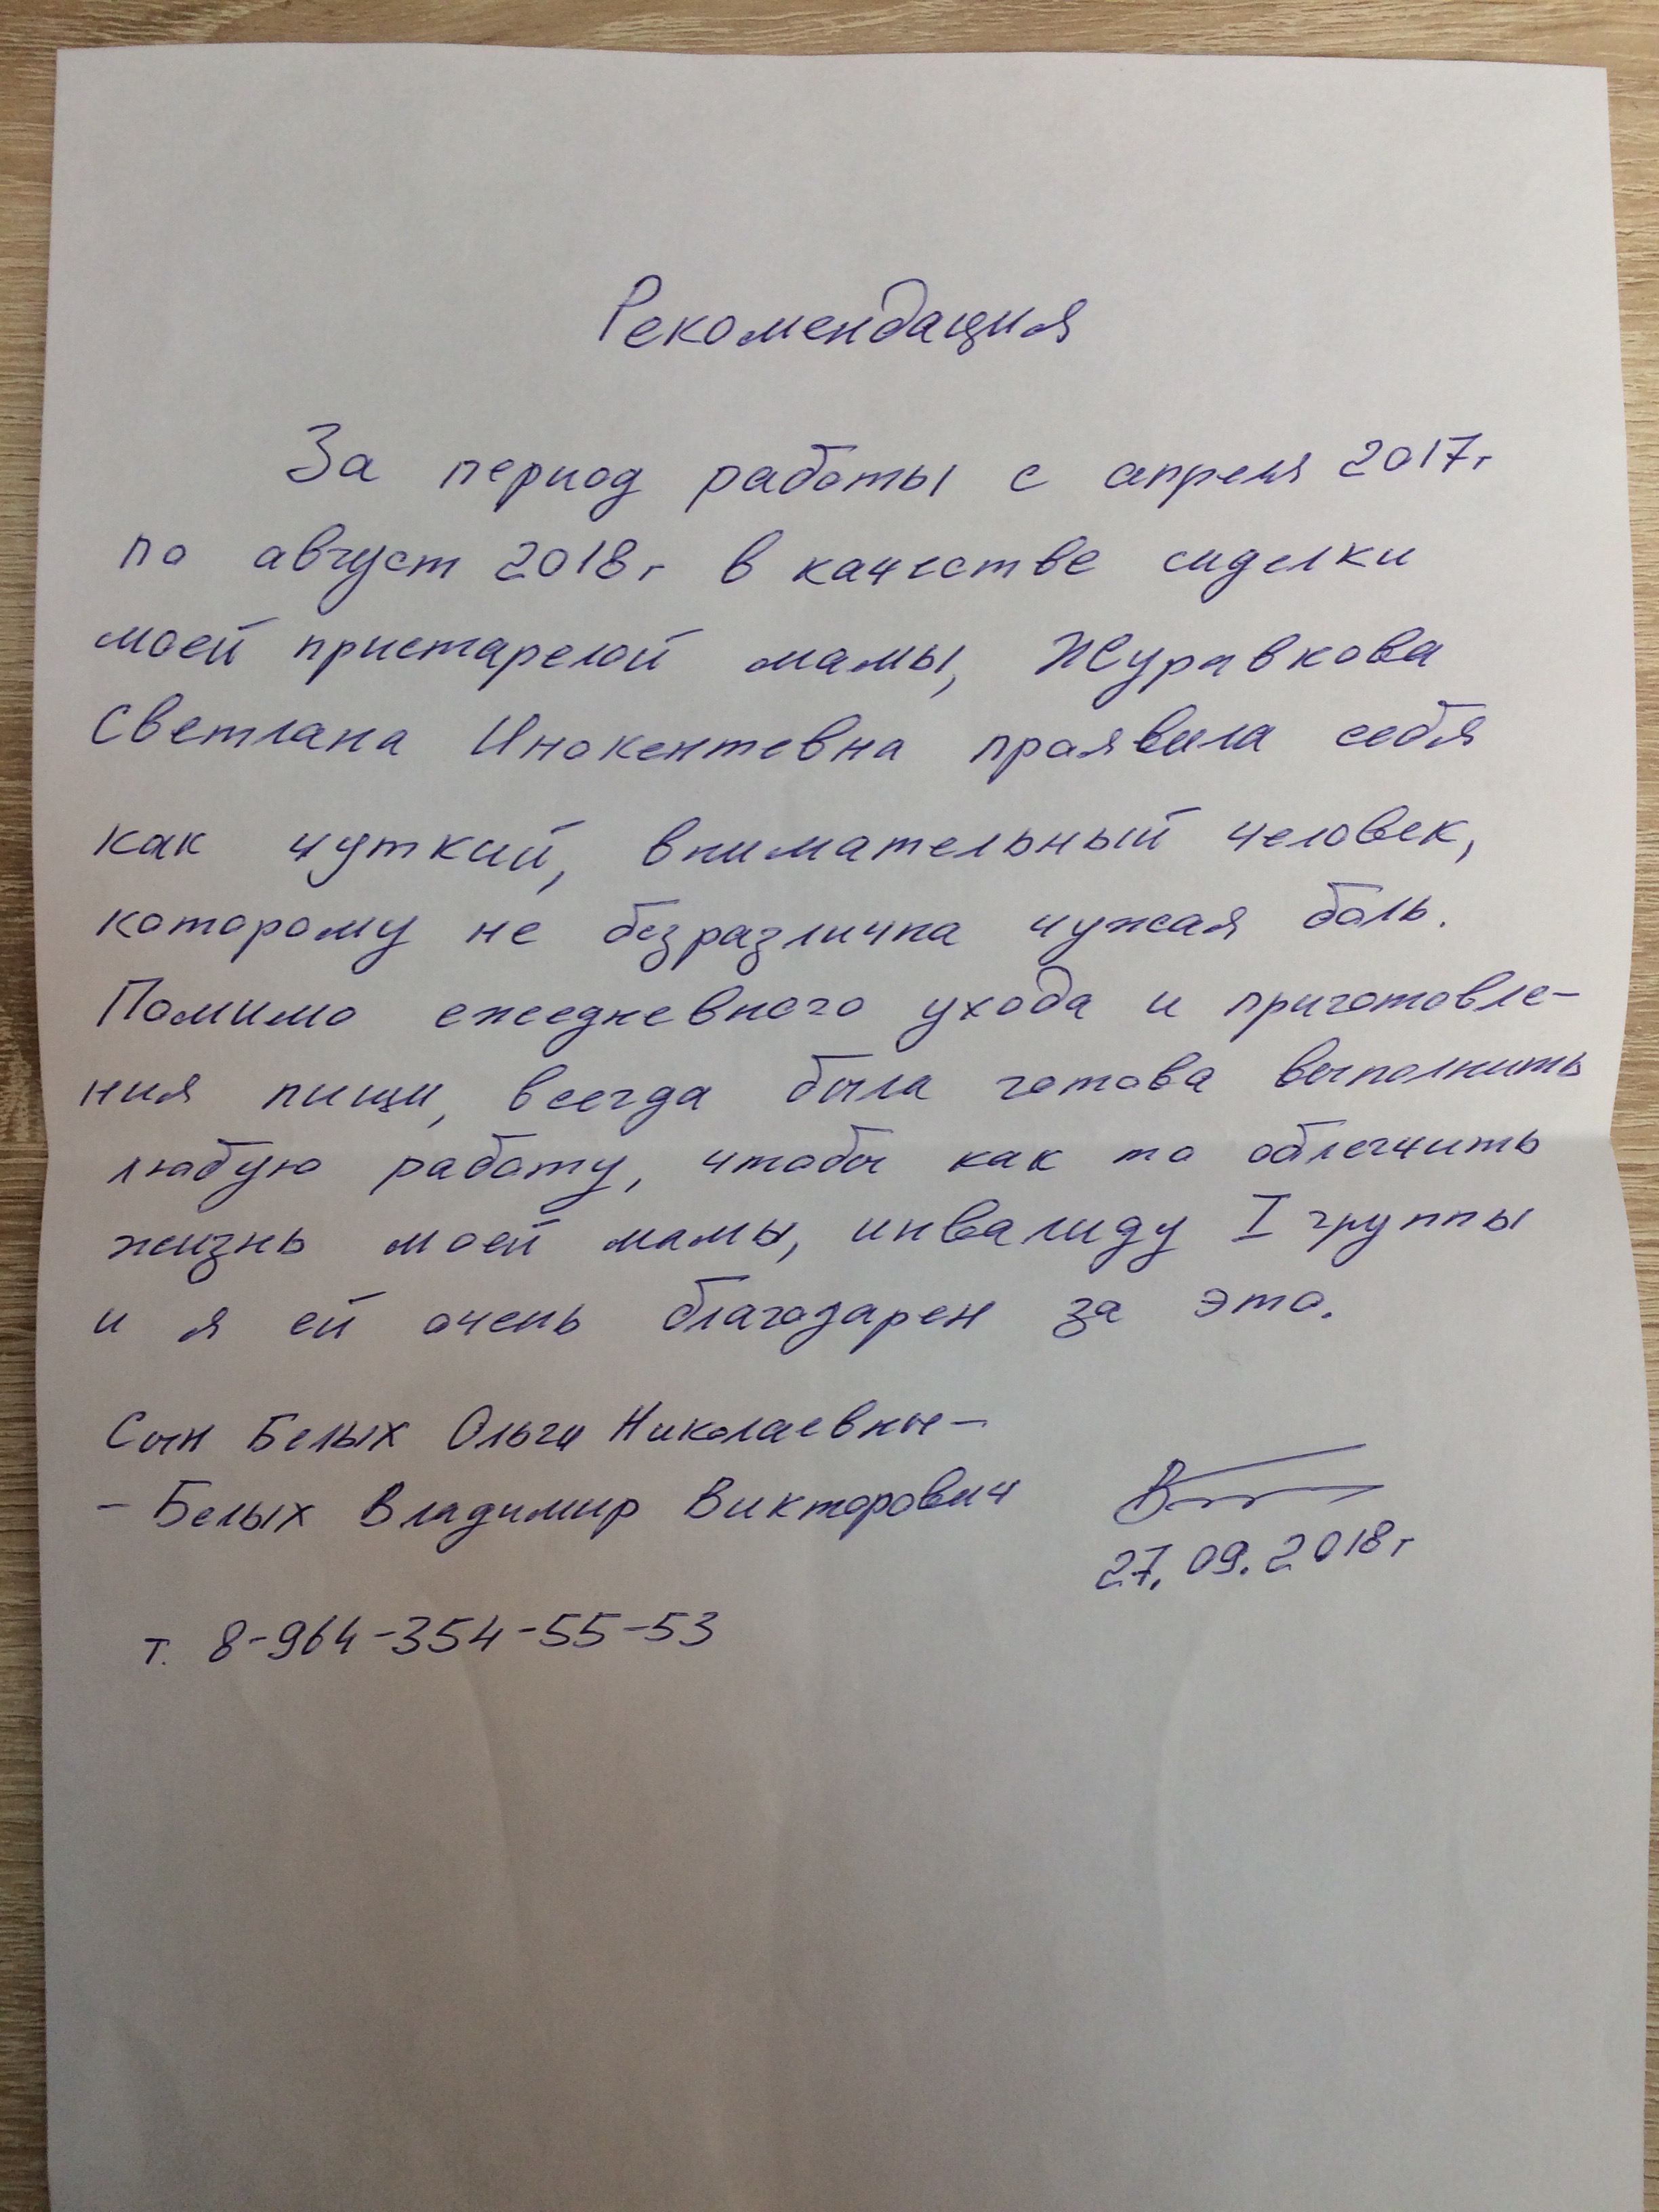 Рекомендация
За период работы с апреля 2017г
по август 2018г в качестве сиделки
моей пристарелой мамы, Журавкова
Светлана Инокентевна проявила себя
как чуткий, внимательный человек,
которому не безразлична чужая боль.
Помимо ежедневного ухода и приготовле-
ния пищи, всегда была готова выполнить
любую работу, чтобы как то облегчить
жизнь моей мамы, инвалиду I группы
и я ей очень благодарен за это.
Сын Белых Ольги Николаевны-
- Белых Владимир Викторович
27.09.2018г
т. 8-964-354-55-53